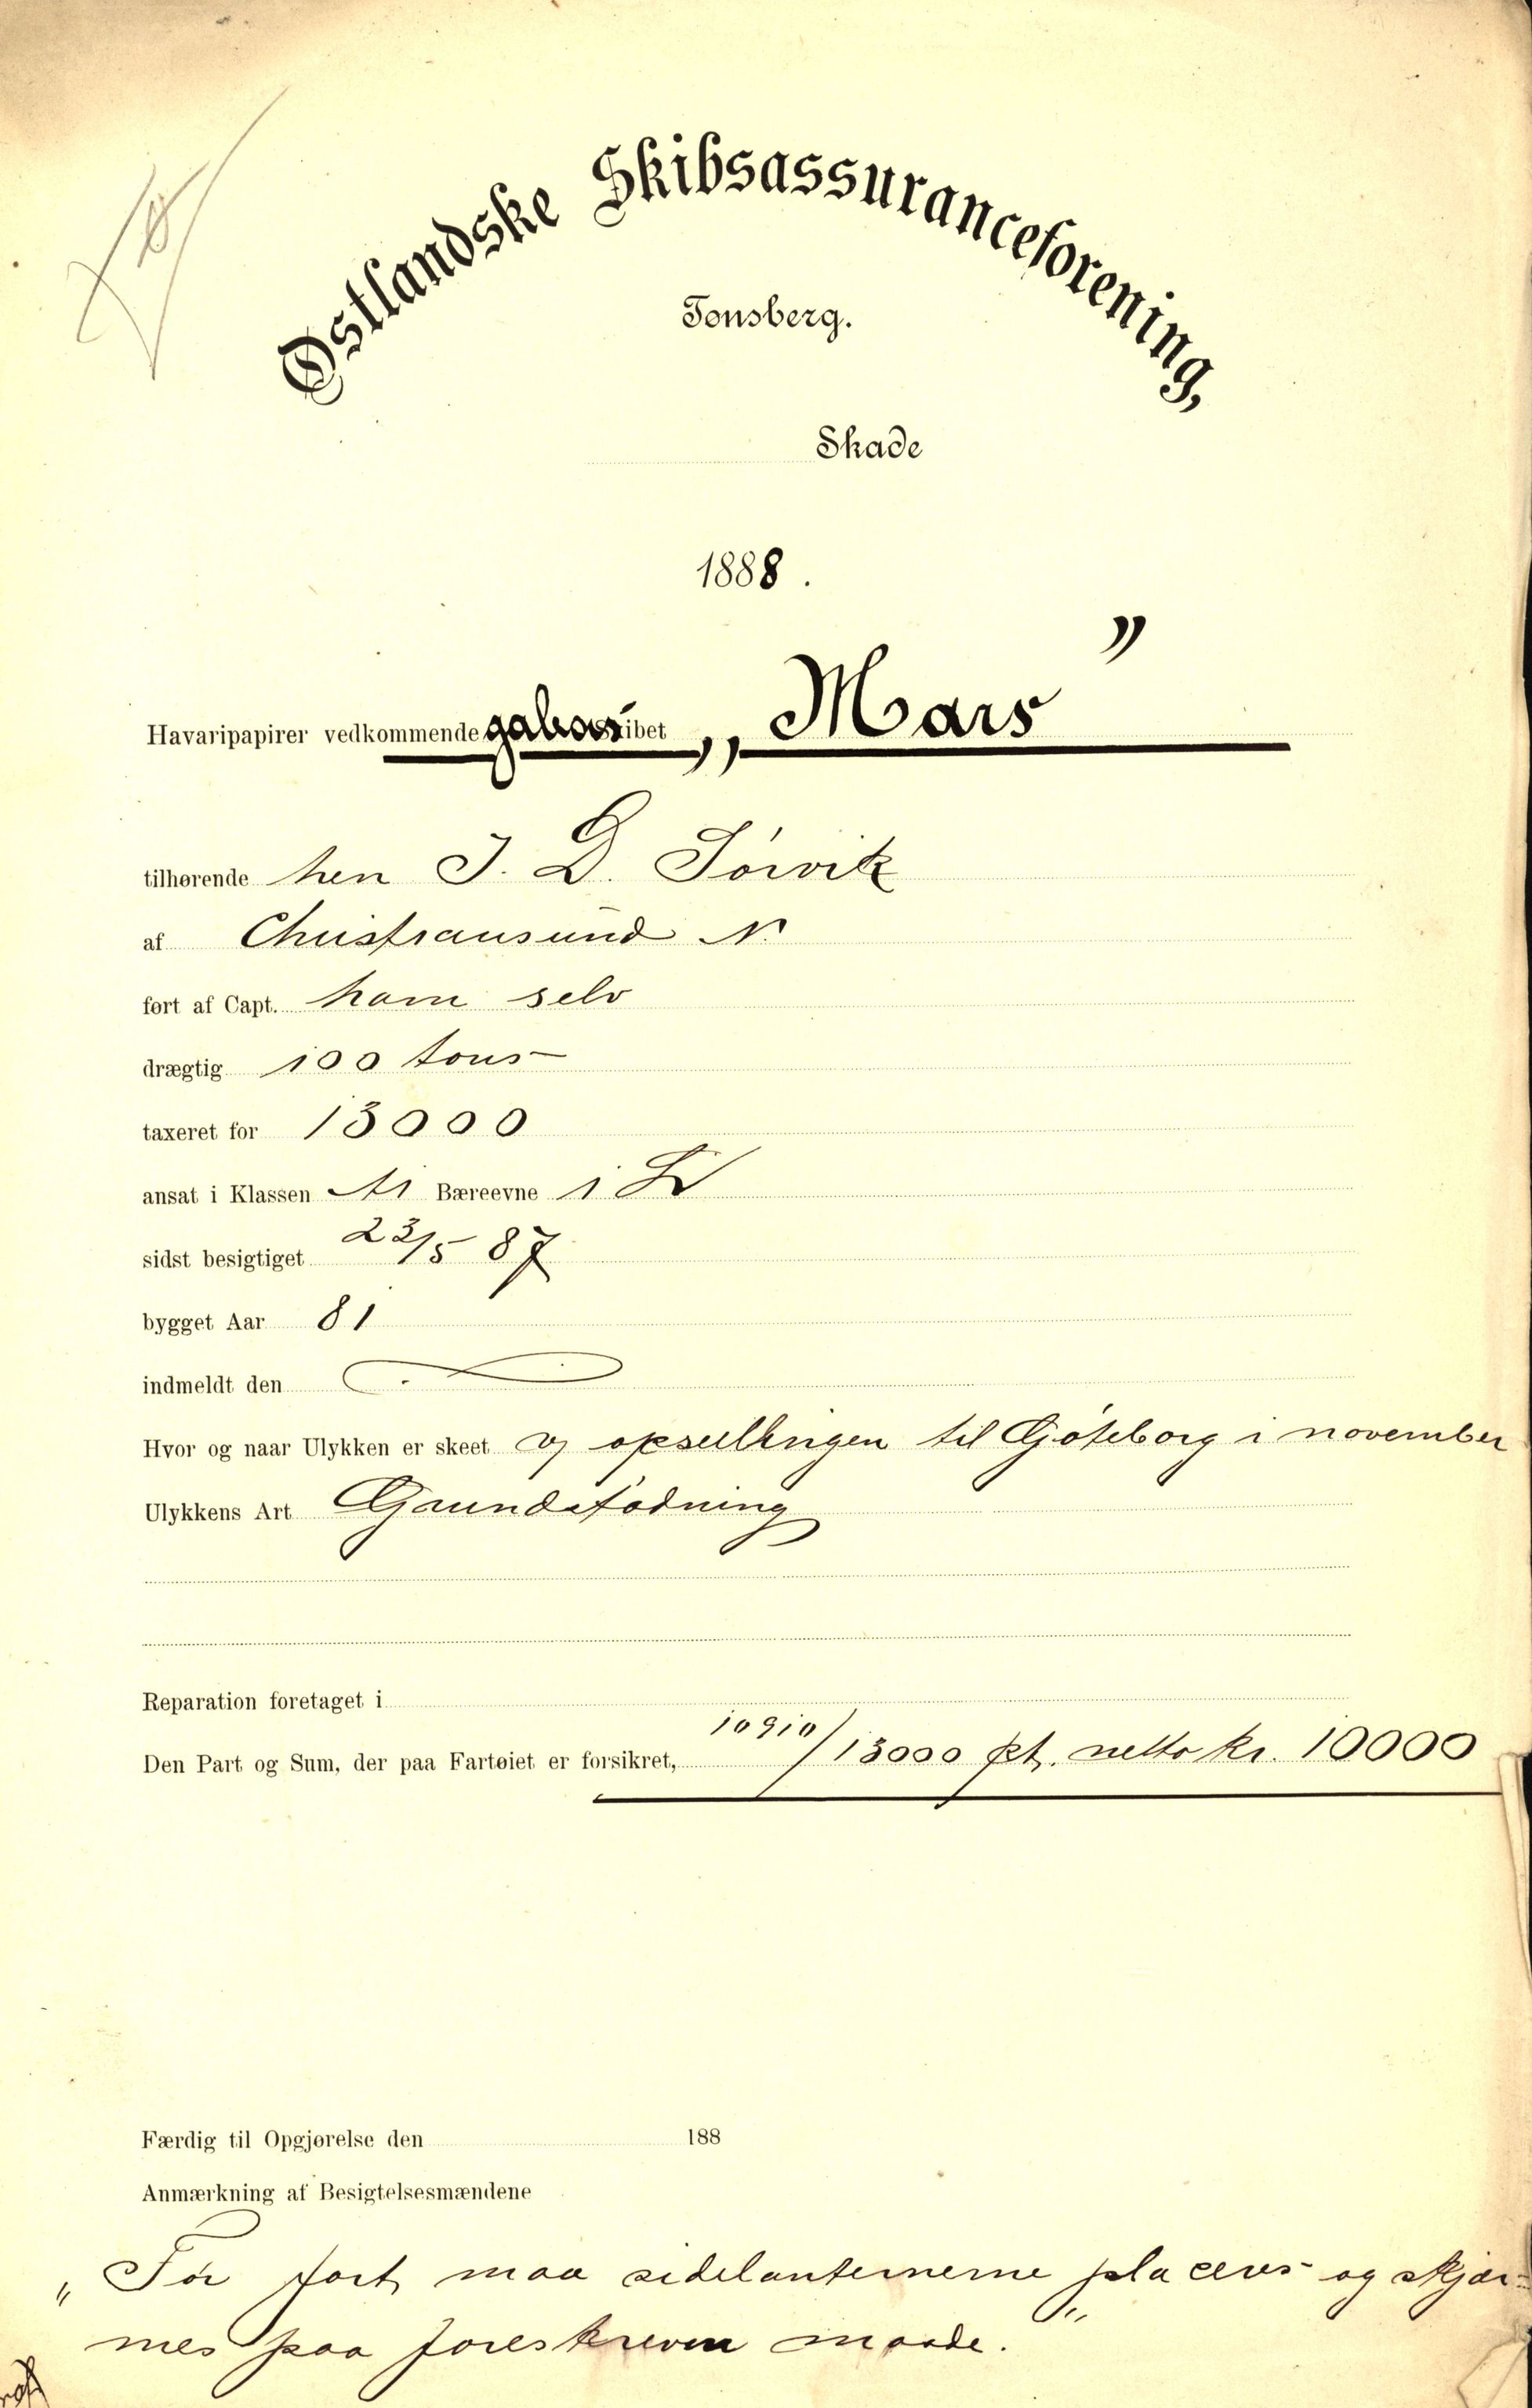 Østlandske Skibsassuranceforening,
Tønsberg.
Skade
1888.
Havaripapirer vedkommende galeas „Mars”
tilhørende herr J. D. Sørvik
af Christiansund N.
ført af Capt. ham selv
drægtig 100 tons
taxeret for 13000
ansat i Klassen A1 Bæreevne 1 L
sidst besigtiget 23/5 87
bygget Aar 81
indmeldt den
Hvor og naar Ulykken er skeet til Gøteborg i november
Ulykkens Art Grundstødning
Reparation foretaget i
Den Part og Sum, der paa Fartøiet er forsikret, 10910/13000 pt. netto kr. 10000
Færdig til Opgjørelse den 188
Anmærkning af Besigtelsesmændene
„Før fart maa sidelanternerne placeres og skjær=
mes paa foreskreven maade.”